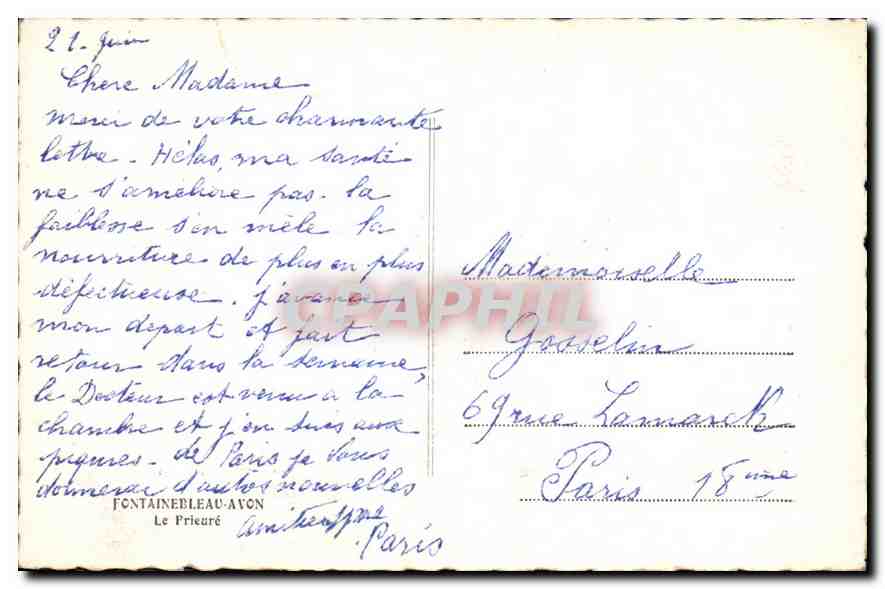 21. Juin
Chere Madame
merci de votre charmante
lettre. Hélas, ma santé
ne s'améliore pas. la
faiblesse s'en mêle la
nourriture de plus en plus
défectueuse. j'avance
mon départ et fait
retour dans la semaine,
le Docteur est venu à la
chambre et j'en suis aux
piqures. de Paris je vous
donnerai d'autres nouvelles
Paris
FONTAINEBLEAU-AVON
Le Prieuré
Mademoiselle
Gosselin
69 rue Lamarck
Paris 18eme
CPAPHIL